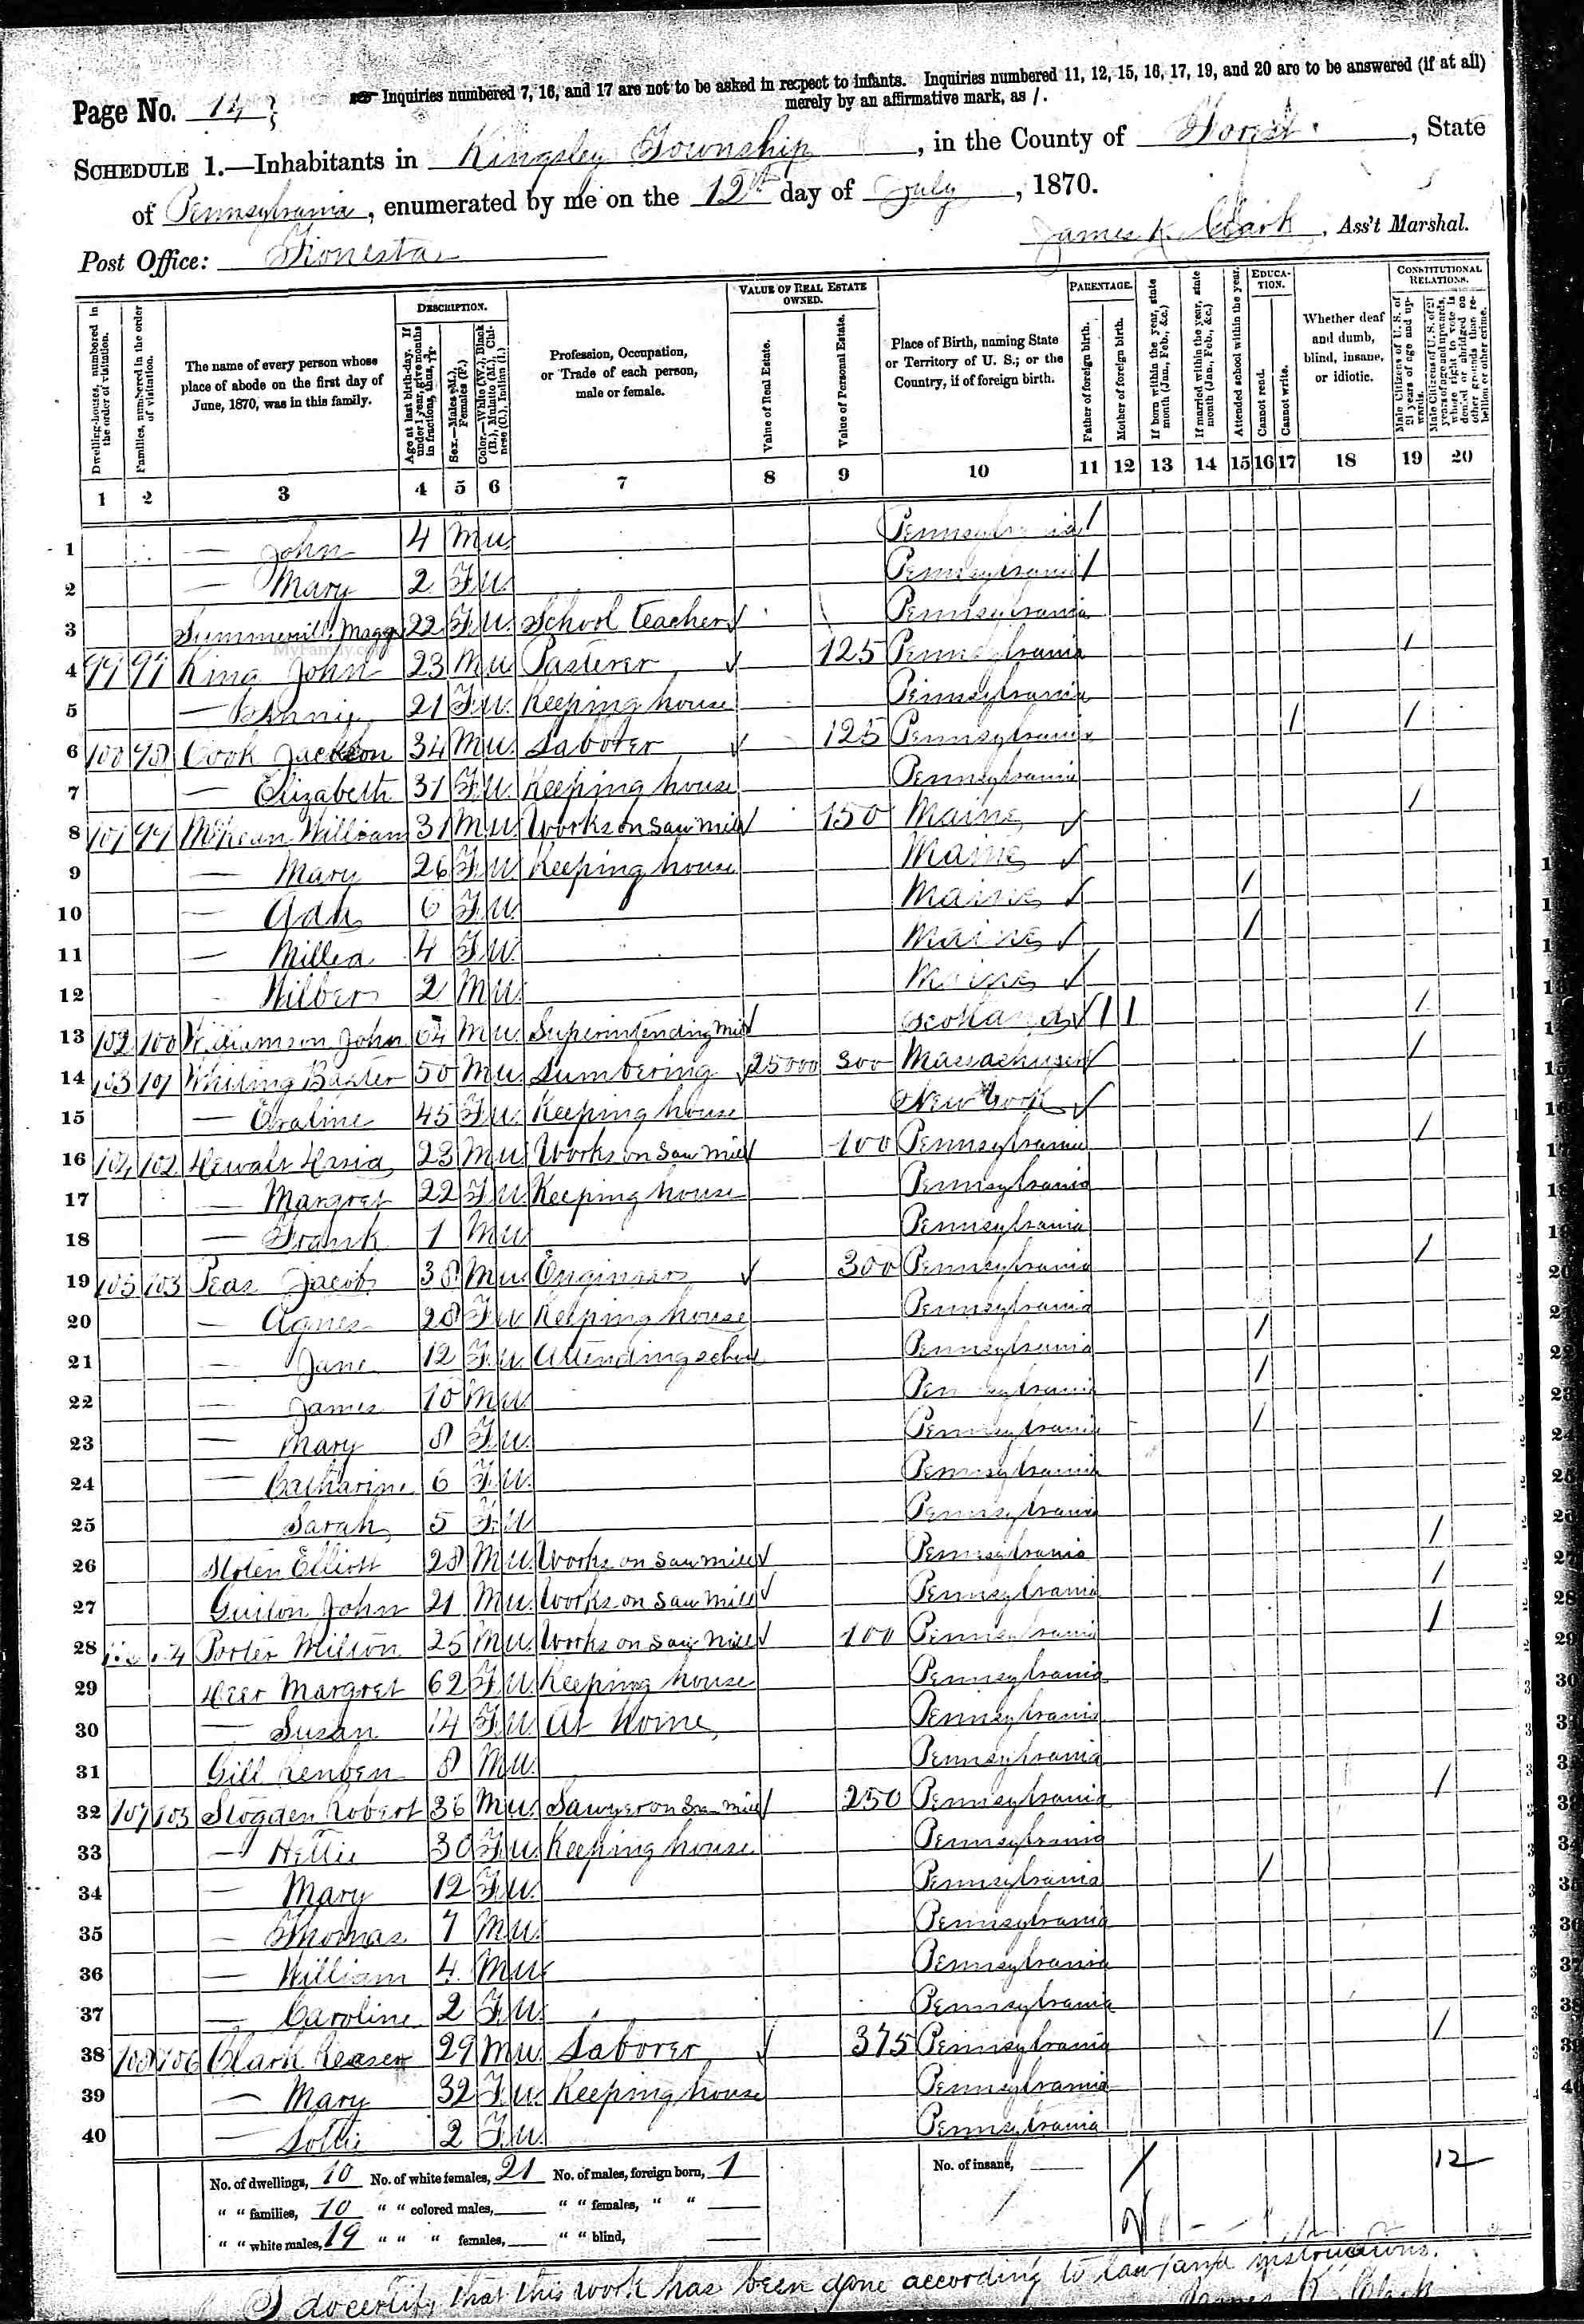 Page No. 14 Inquiries numbered 7, 16, and 17 are not to be asked in respect to infants. Inquiries numbered 11, 12, 15, 16, 17, 19, and 20 are to be answered (if at all)
merely by an affirmative mark, as /.
SCHEDULE 1.—Inhabitants in Kingsley Township, in the County of Forest, State
of Pennsylvania, enumerated by me on the 12th day of July, 1870.
Post Office: Tionesta James K. Clark, Ass't Marshal.
Dwelling-houses, numbered in the order of visitation.
Families, numbered in the order of visitation.
The name of every person whose place of abode on the first day of June, 1870, was in this family.
DESCRIPTION.
Age at last birth-day. If under 1 year, give months in fractions, thus,
Sex.—Males (M.), Females (F.)
Color.—White (W.), Black (B.), Mulatto (M.), Chinese (C.), Indian (I.)
Profession, Occupation, or Trade of each person, male or female.
VALUE OF REAL ESTATE OWNED.
Value of Real Estate.
Value of Personal Estate.
Place of Birth, naming State or Territory of U. S.; or the Country, if of foreign birth.
PARENTAGE.
Father of foreign birth.
Mother of foreign birth.
If born within the year, state month (Jan., Feb., &c.)
If married within the year, state month (Jan., Feb., &c.)
EDUCATION.
Attended school within the year.
Cannot read.
Cannot write.
Whether deaf and dumb, blind, insane, or idiotic.
CONSTITUTIONAL RELATIONS.
Male Citizens of U. S. of 21 years of age and upwards.
Male Citizens of U. S. of 21 years of age and upwards, whose right to vote is denied or abridged on other grounds than rebellion or other crime.
1 2 3 4 5 6 7 8 9 10 11 12 13 14 15 16 17 18 19 20
1 — John 4 M W. Pennsylvania /
2 — Mary 2 F W. Pennsylvania /
3 22 F W. School teacher Pennsylvania
4 King John 23 M W 125 Pennsylvania /
5 — 21 F W. Keeping house Pennsylvania
6 100 98 Cook Jackson 34 M W. Laborer 125 Pennsylvania / /
7 — Elizabeth 31 F W. Keeping house Pennsylvania
8 101 99 McKean William 31 M W. Works on Saw Mill 150 Maine /
9 — Mary 26 F W Keeping house Maine
10 — Ada 6 F W. Maine /
11 — 4 F W. Maine /
12 Wilber 2 M W. Maine
13 102 100 Williamson John 64 M W. Superintending Mill Scotland / / /
14 103 101 Whiting Baxter 50 M W Lumbering 25000 300 Massachuset /
15 — Evaline 45 F W. Keeping house New York
16 104 102 23 M W Works on Saw Mill 100 Pennsylvania /
17 — Margret 22 F W. Keeping house Pennsylvania
18 — Frank 1 M W Pennsylvania
19 105 103 Peas Jacob 38 M W. Engineer 300 Pennsylvania /
20 — Agnes 28 F W Keeping house Pennsylvania
21 — Jane 12 F W. Attending school Pennsylvania /
22 — James 10 M W. Pennsylvania /
23 — Mary 8 F W. Pennsylvania /
24 — Catharine 6 F W. Pennsylvania
25 Sarah 5 F W Pennsylvania
26 Elliott 28 M W. Works on Saw mill Pennsylvania /
27 John 21 M W. Works on Saw Mill Pennsylvania /
28 Porter Milton 25 M W. Works on Saw Mill 100 Pennsylvania /
29 Margret 62 F W. Keeping house Pennsylvania
30 — Susan 14 F W. At Home Pennsylvania
31 Gill Reuben 8 M W. Pennsylvania
32 107 105 Slogden Robert 36 M W. Sawyer on Saw Mill 250 Pennsylvania /
33 — Hettie 30 F W. Keeping house Pennsylvania
34 — Mary 12 F W. Pennsylvania /
35 — Thomas 7 M W. Pennsylvania
36 — William 4 M W Pennsylvania
37 — Caroline 2 F W. Pennsylvania
38 108 106 Clark 29 M W. Laborer 375 Pennsylvania /
39 — Mary 32 F W. Keeping house Pennsylvania
40 — Lottie 2 F W. Pennsylvania
No. of dwellings, 10 No. of white females, 21 No. of males, foreign born, 1 No. of insane, 12
" " families, 10 " " colored males, " " females, " "
" " white males, 19 " " " females, " " blind,
I do certify that this work has been done according to law and instructions.
James K. Clark